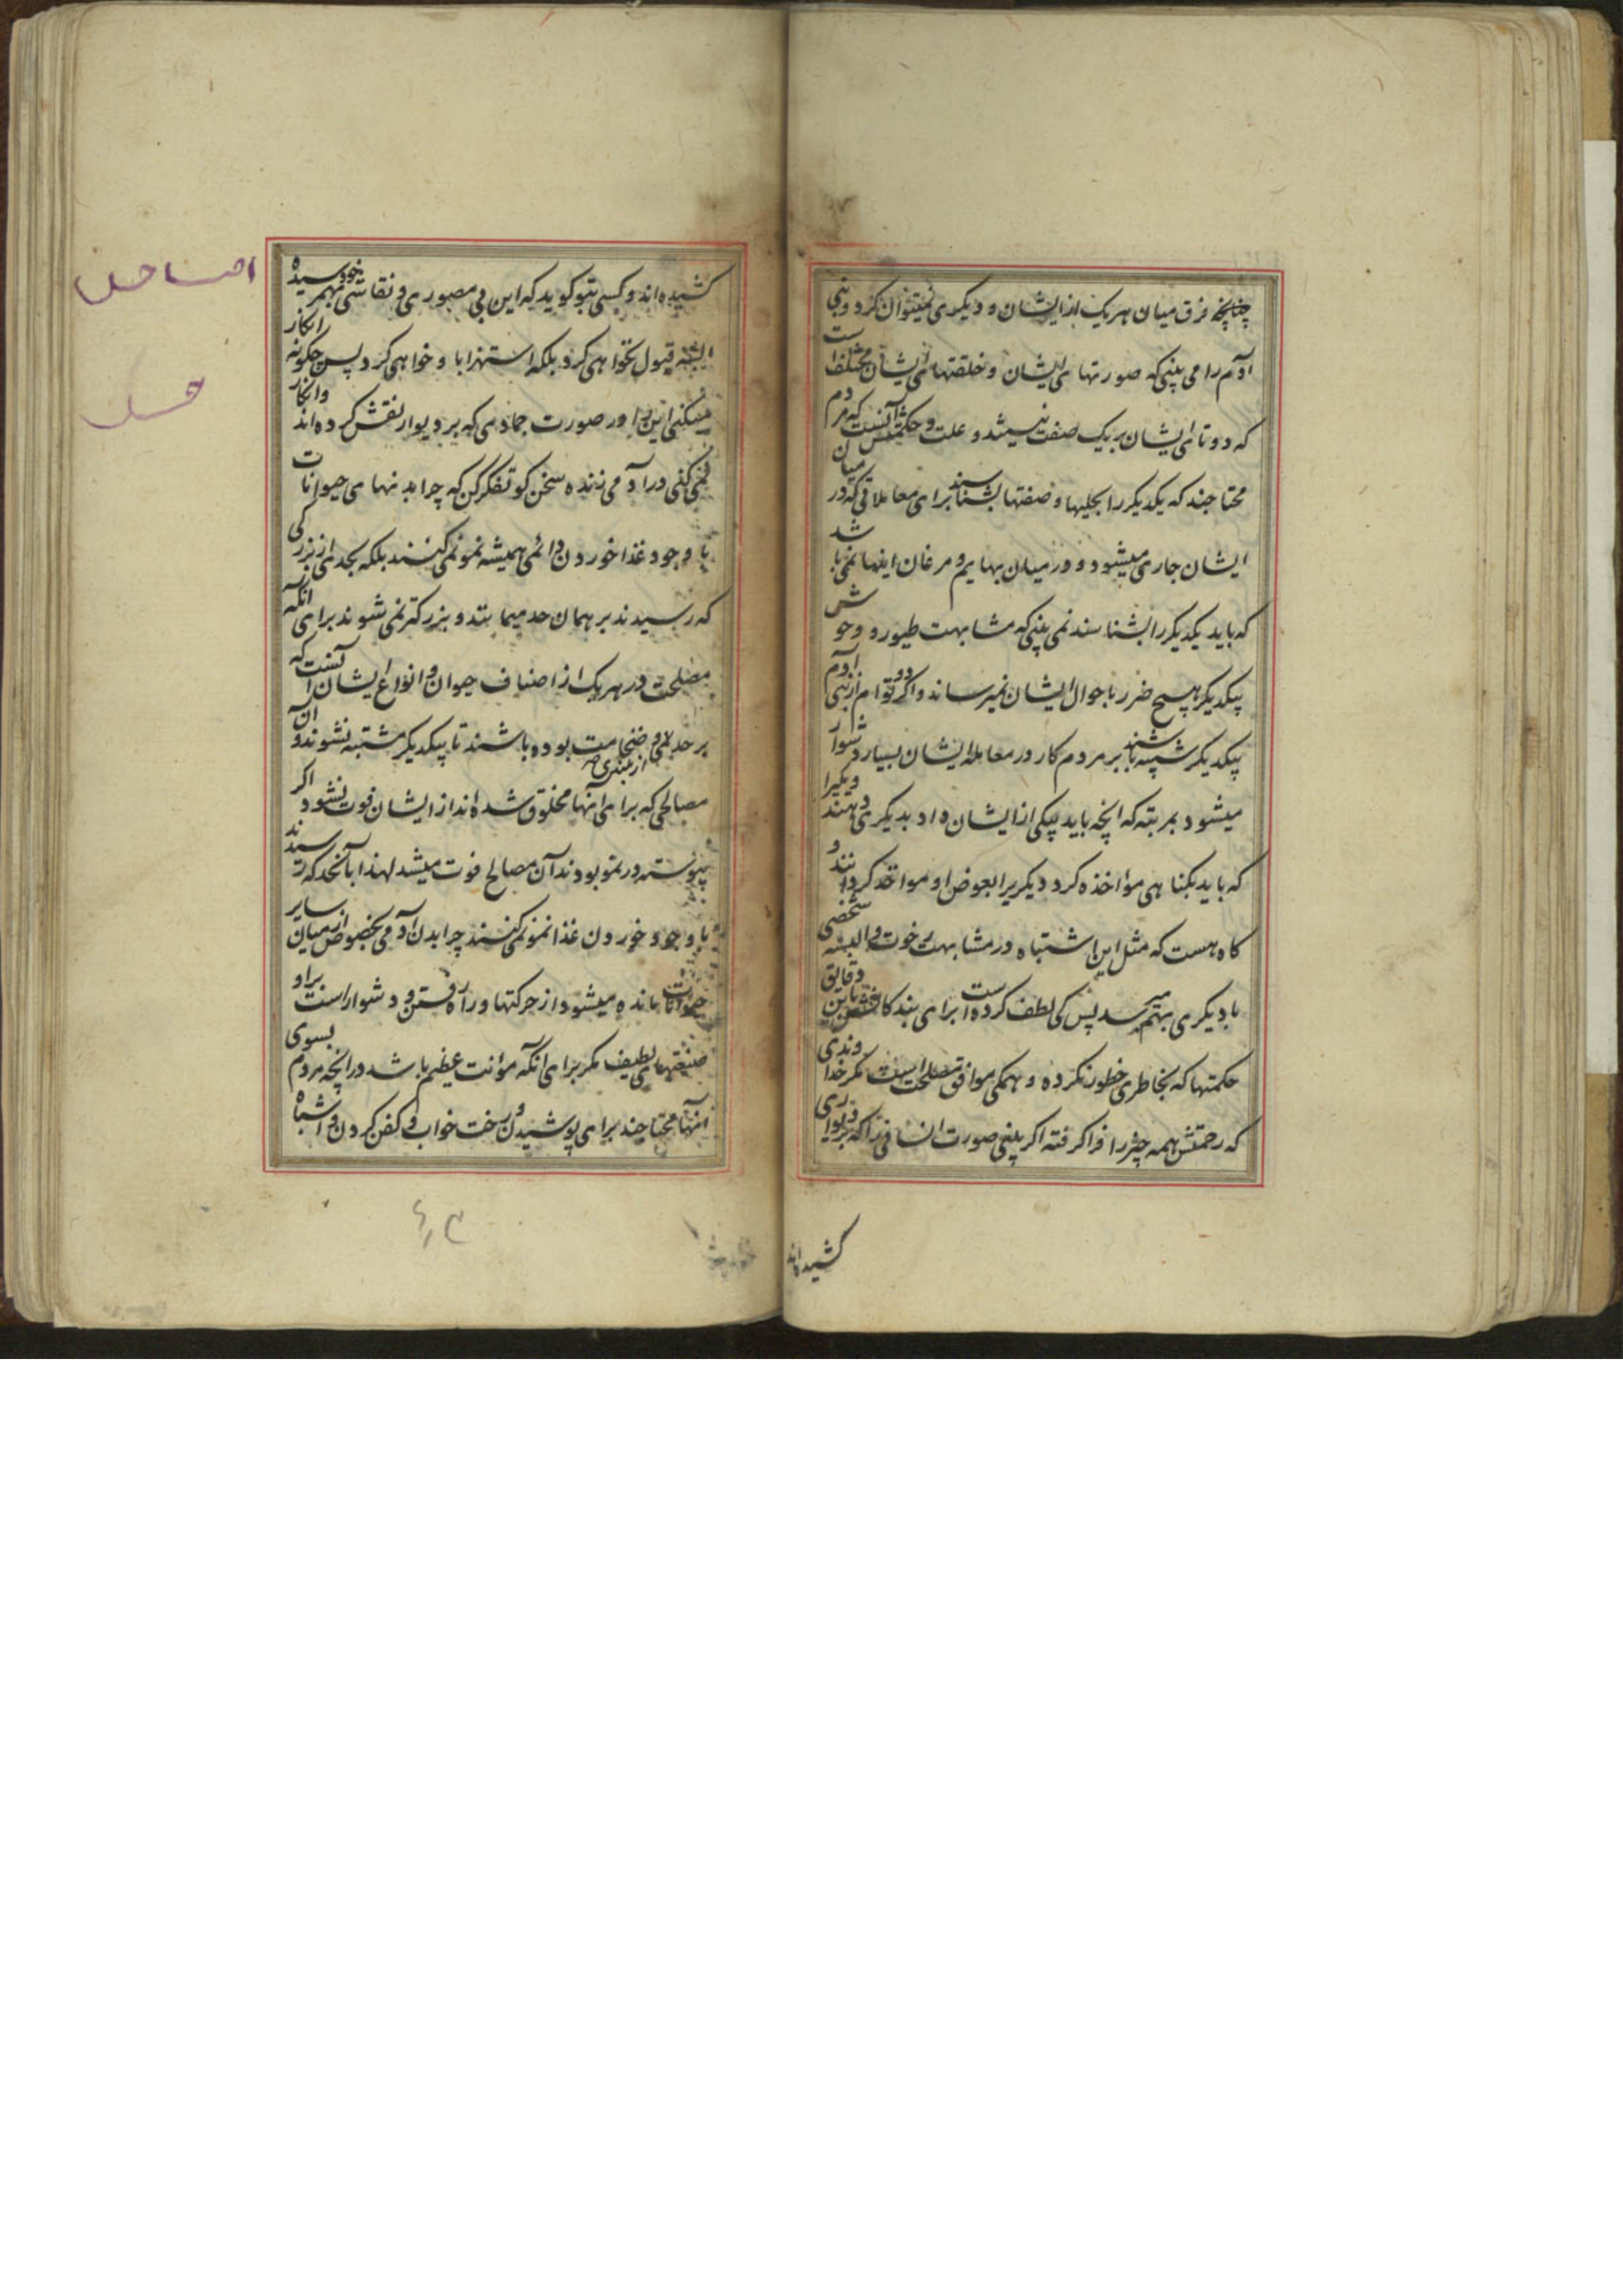 چنانچه فرق میان هر یک از ایشان و دیگری نمیتوان کرد و بنی
آدم را می بینی که صورتهای ایشان و خلقتهای ایشان مختلف است
که دو تای ایشان بر یک صفت نیستند و علت و حکمتش آنست که مردم
محتاجند که یکدیگر را بحلیها و صفتها بشناسند برای معاملاتی که در میان
ایشان جاری میشود و در میان بهایم و مرغان اینها نمی باشد
که باید یکدیگر را بشناسند نمی بینی که مشابهت طیور و وحوش
بیکدیگر هیچ ضرر باحوال ایشان نمیرساند و اگر دو توام از بنی آدم
بیکدیگر شبیه باشند بر مردم کار در معامله ایشان بسیار دشوار
میشود بمرتبه که انچه باید بیکی از ایشان داد بدیگری دهند و یکیرا
که باید بگناهی مؤاخذه کرد دیگریرا بعوض او مواخذ گردانند و
گاه هست که مثل این اشتباه در مشابهت رخوت و البسه شخصی
با دیگری بهم میرسد پس کی لطف کرده است برای بندگانش باین دقایق
حکمتها که بخاطری خطور نکرده و همگی موافق مصلحت است مگر خداوندی
که رحمتش همه چیز را فرا گرفته اگر بینی صورت انسانی را که بر دیواری
کشیده اند
کشیده اند و کسی بتو گوید که این بی مصوری و نقاشی بهم رسیده خود
البته قبول نخواهی کرد بلکه استهزا باو خواهی کرد پس چگونه انکار
میکنی این را در صورت جمادی که بر دیوار نقش کرده اند وانکار
نمی کنی در آدمی زنده سخن گو تفکر کن که چرا بدنهای حیوانات
با وجود غذا خوردن دائمی همیشه نمو نمی کنند بلکه بحدی از بزرگی
که رسیدند بر همان حد میمانند و بزرگتر نمی شوند برای آنکه
مصلحت در هر یک از اصناف حیوان و انواع ایشان آنست که
بر حد لامی از بلندی و ضخامت بوده باشند تا بیکدیگر مشتبه نشوند و آن
مصالحی که برای آنها مخلوق شده اند از ایشان فوت نشود و اگر
پیوسته در نمو بودند آن مصالح فوت میشد لهذا بآنحد که رسیدند
با وجود خوردن غذا نمو نمی کنند چرا بدن آدمی بخصوص از میان سایر
حیوانات مانده میشود از حرکتها و راه رفتن و دشوار است بر او
صنعتهای لطیف مگر برای آنکه مؤنت عظیم باشد در انچه مردم بسوی
آنها محتاجند برای پوشیدن و رخت خواب و کفن کردن و اشباه